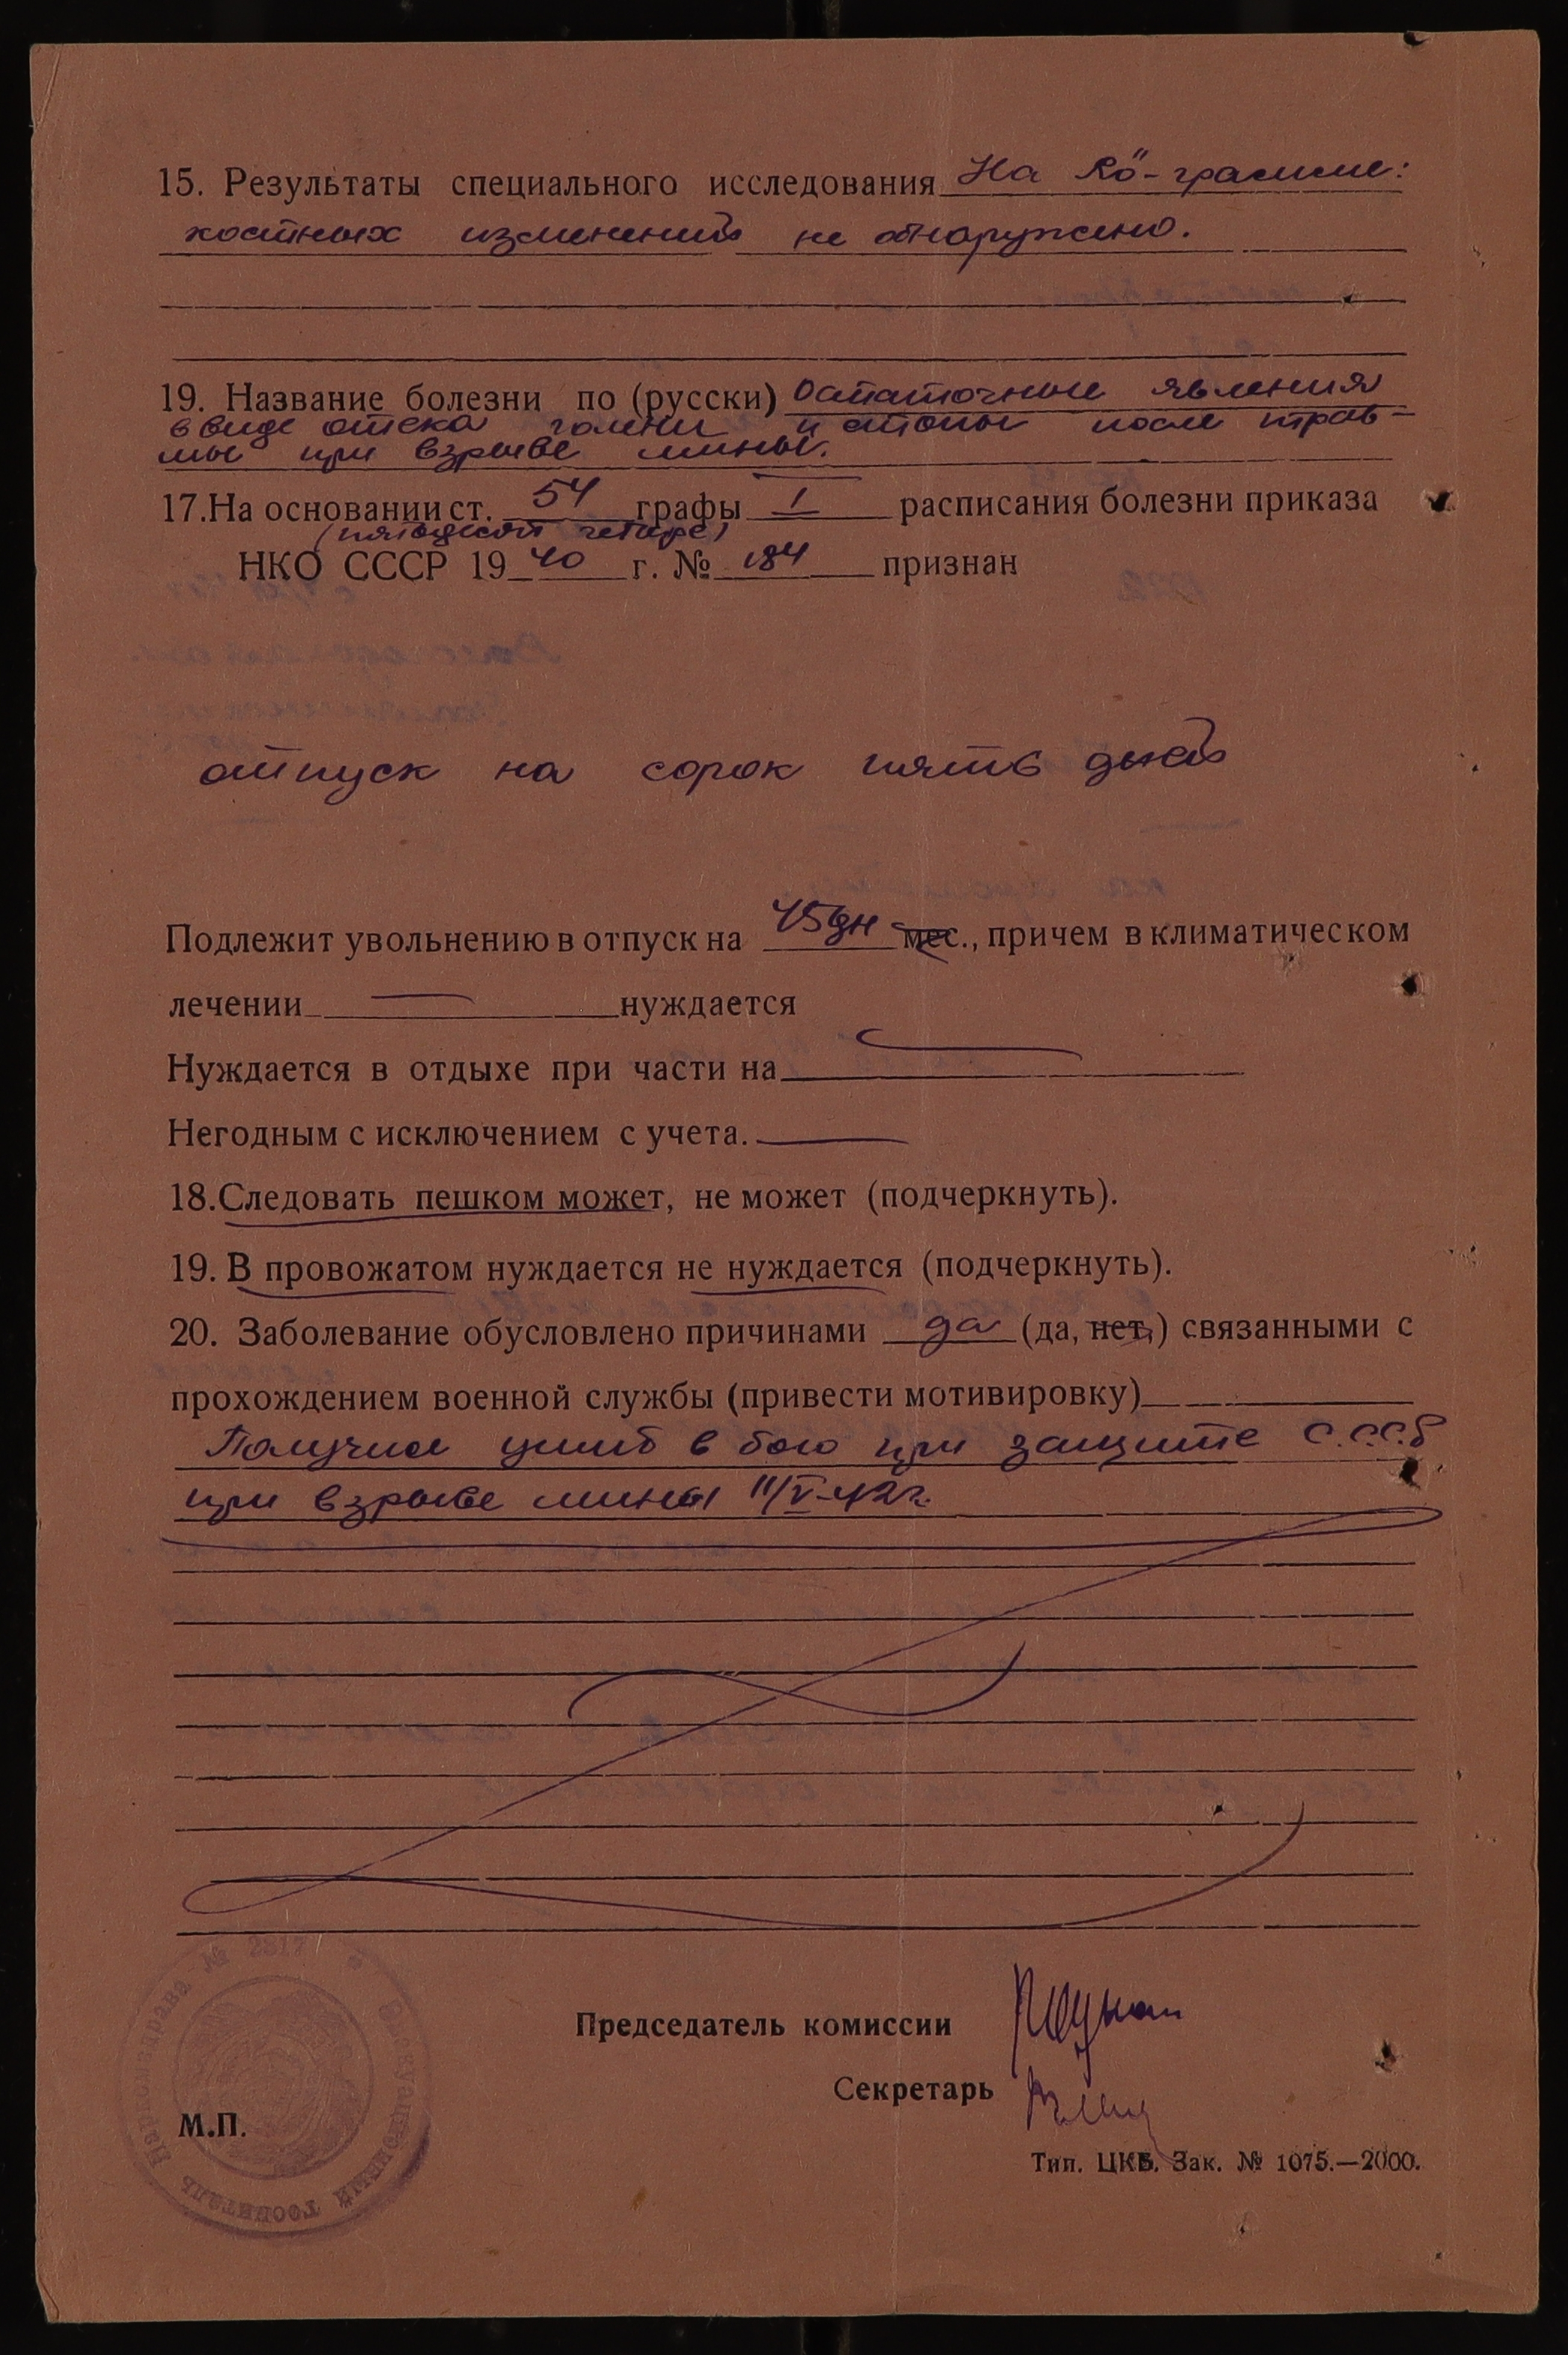 15. Результаты специального исследования На Rö-грамме:
костных изменений не обнаружено.
19. Название болезни по (русски) Остаточные явления
в виде отека голени и стопы после трав-
мы при взрыве мины.
17.На основании ст. 54 графы I расписания болезни приказа
(пятьдесят четыре)
НКО СССР 19 40 г. № 184 признан
отпуск на сорок пять дней
Подлежит увольнению в отпуск на 45 дн мес., причем в климатическом
лечении — нуждается
Нуждается в отдыхе при части на —
Негодным с исключением с учета. —
18.Следовать пешком может, не может (подчеркнуть).
19. В провожатом нуждается не нуждается (подчеркнуть).
20. Заболевание обусловлено причинами да (да, нет,) связанными с
прохождением военной службы (привести мотивировку)
Получил ушиб в бою при защите С.С.С.Р
при взрыве мины 11/V-42г.
Председатель комиссии
Секретарь
М.П.
Наркомздрава № 2517 Эвакуационный госпиталь
Тип. ЦКБ. Зак. № 1075.—2000.